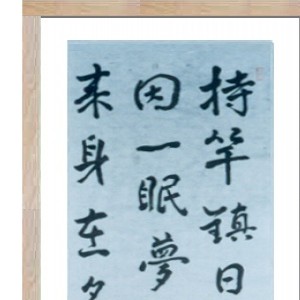 持竿鎮日
因一眠夢
来身在夕